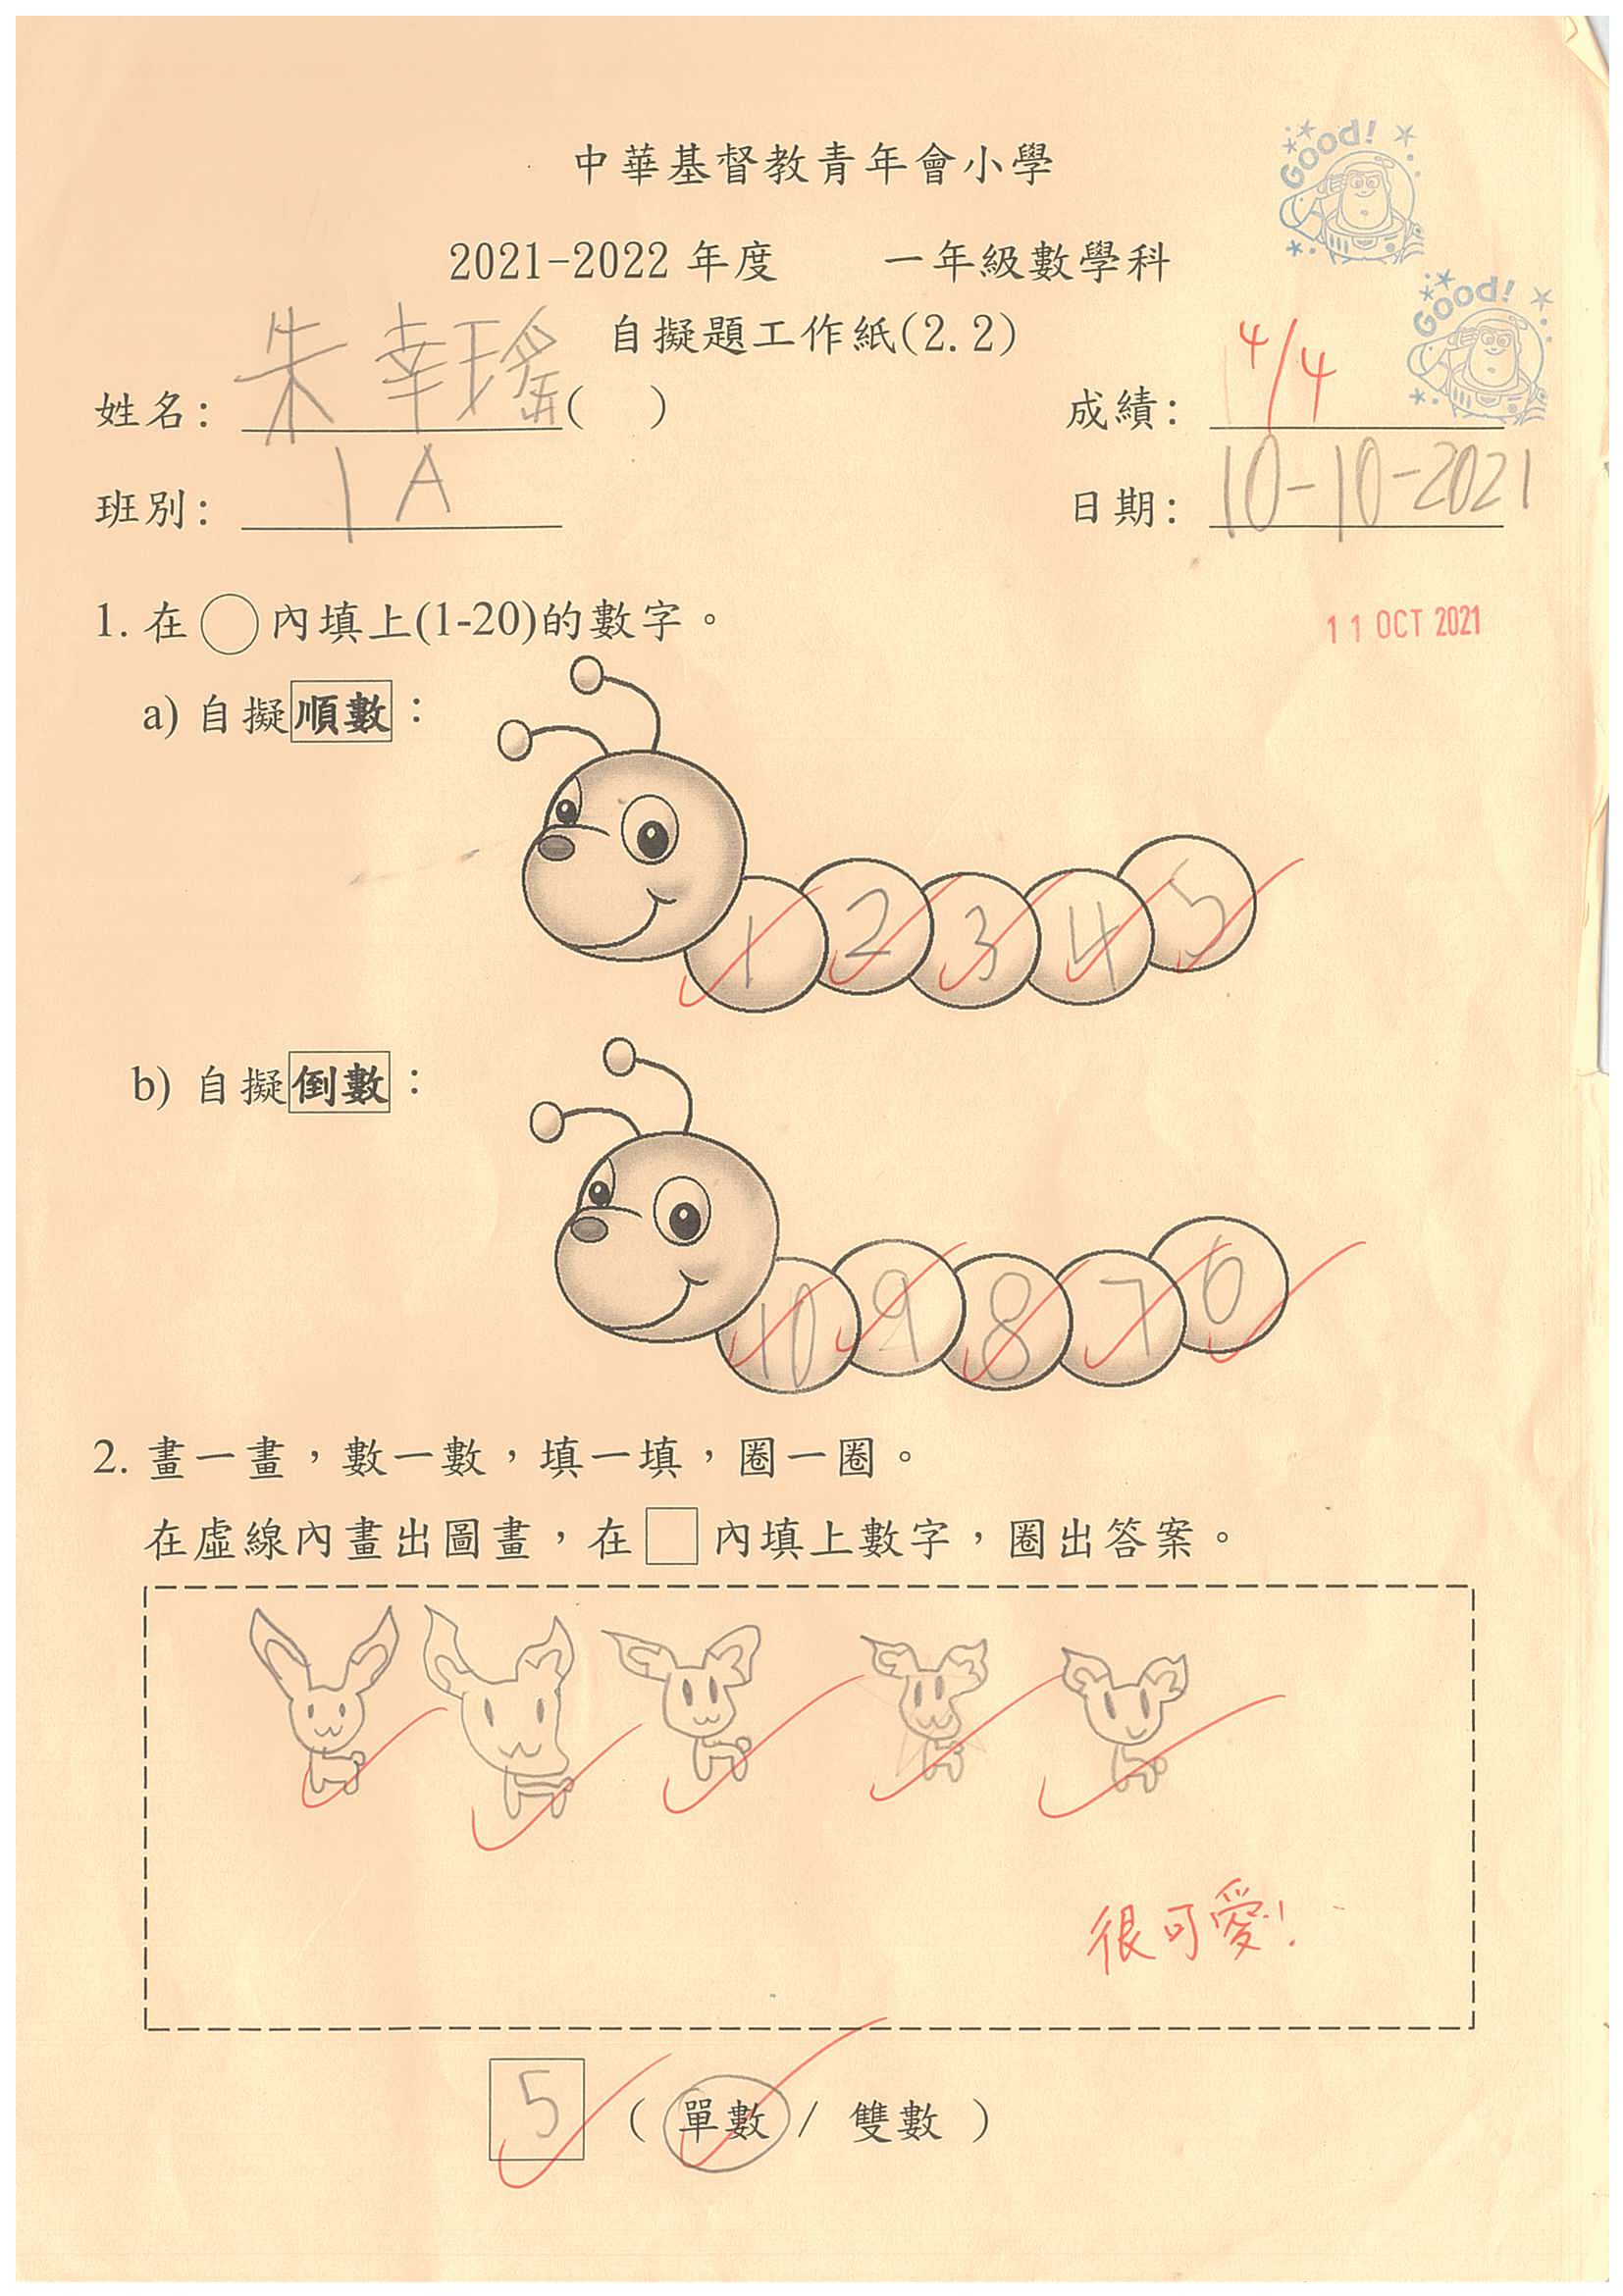 中華基督教青年會小學
Good!
2021-2022 年度 一年級數學科
Good!
自擬題工作紙(2.2)
姓名: 朱幸瑤( ) 成績: 4/4
班別: 1A 日期: 10-10-2021
1. 在○內填上(1-20)的數字。
11 OCT 2021
a) 自擬順數:
1 2 3 4 5
b) 自擬倒數:
10 9 8 7 6
2. 畫一畫,數一數,填一填,圈一圈。
在虛線內畫出圖畫,在□內填上數字,圈出答案。
很可愛!
5 ( 單數 / 雙數 )